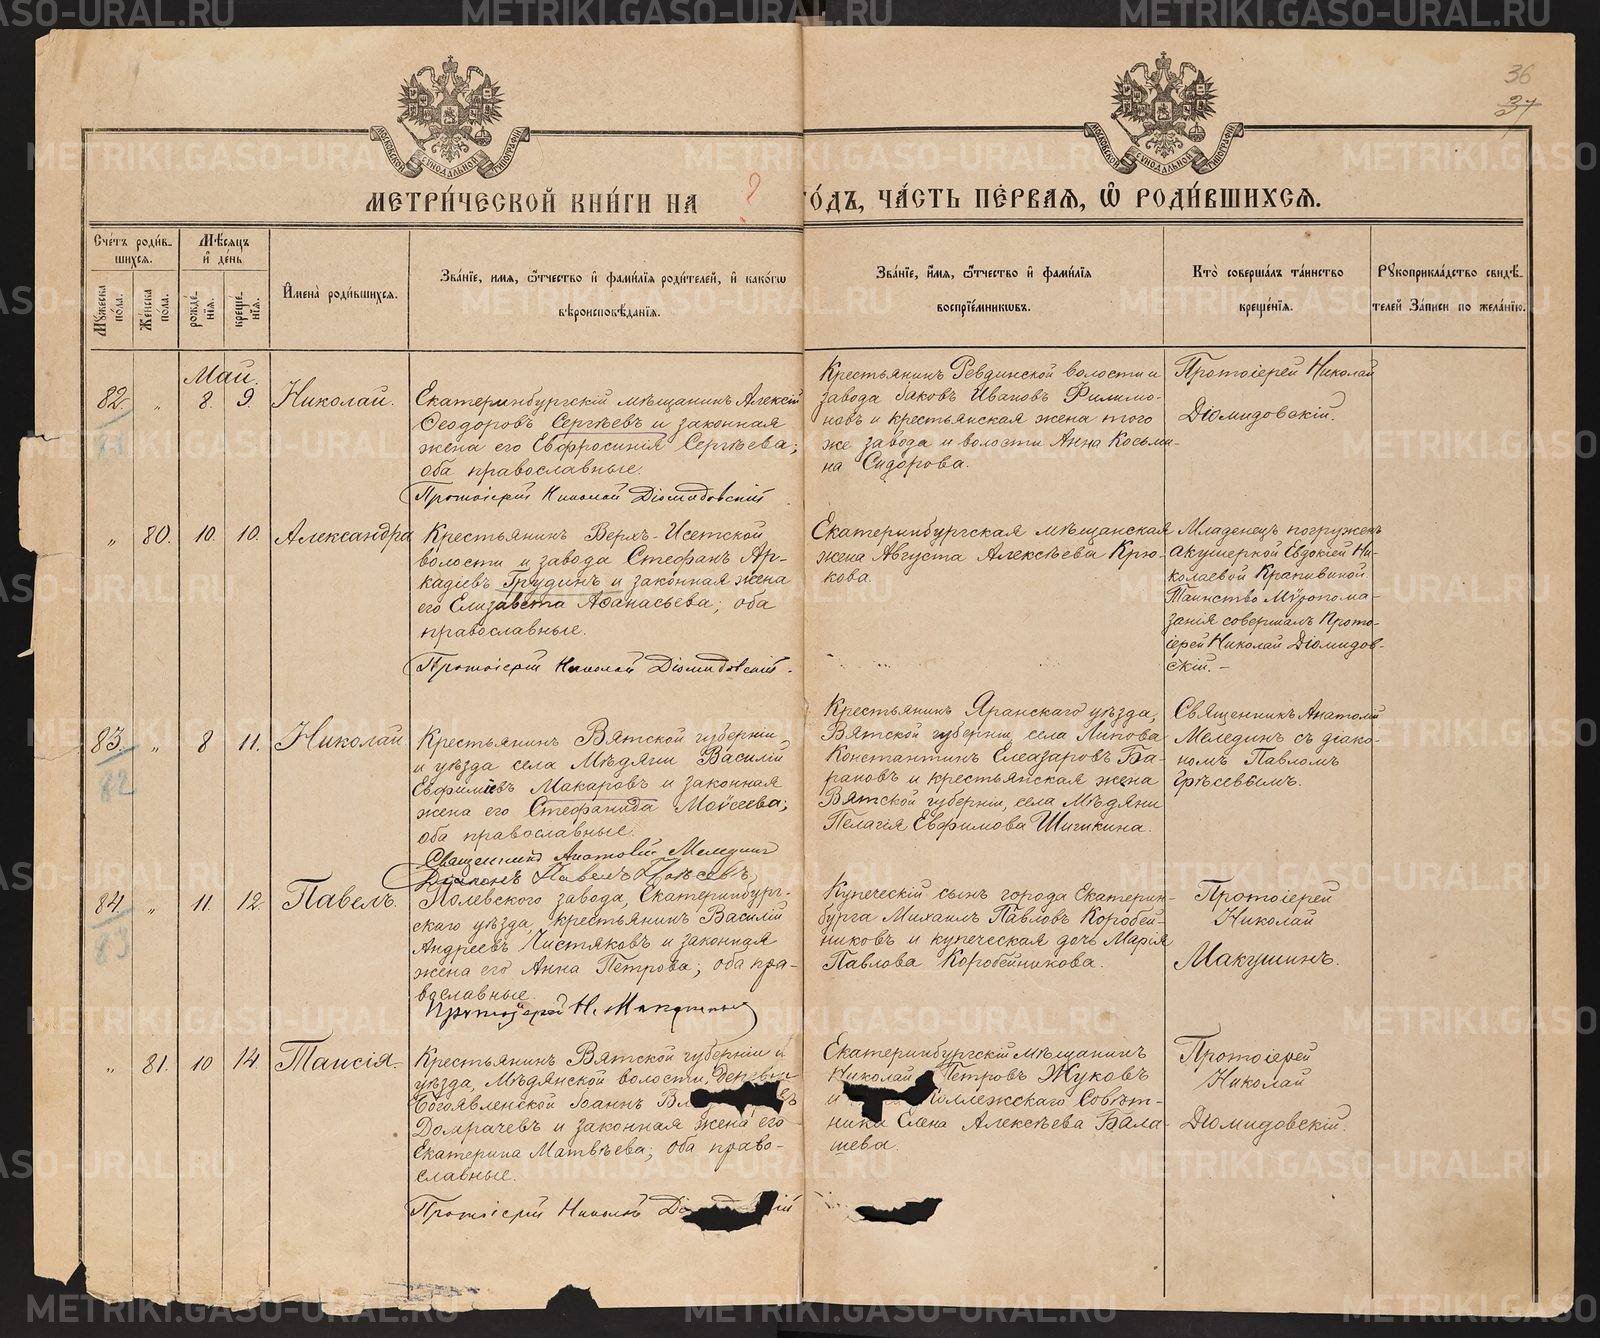 36
37
МОСКОВСКОЙ СѴНОДАЛЬНОЙ ТИПОГРАФІИ
МОСКОВСКОЙ СѴНОДАЛЬНОЙ ТИПОГРАФІИ
МЕТРИ́ЧЕСКОЙ КНИ́ГИ НА ? ГО́ДЪ, ЧА́СТЬ ПЕ́РВАЯ, Ѽ РОДИ́ВШИХСЯ.
Сче́тъ роди́в-
шихся.
Мужеска по́ла.
Же́нска по́ла.
Мѣ́сяцъ
и҆ де́нь
рожде́-
нїя.
креще́-
нїя.
И҆мена̀ роди́вшихся.
Зва́нїе, имя, ѻ҆́тчество и҆ фами́лїя роди́телей, и҆ како́гѡ
вѣроисповѣ́данїя.
Зва́нїе, и҆́мя, ѻ҆́тчество и҆ фами́лїя
воспрїе́мникѡвъ.
Кто̀ соверша́лъ та́инство
креще́нїя.
Рꙋкоприкла́дство свидѣ́-
телей за́писи по жела́нїю.
Май.
82. " 8. 9. Николай.
81
Екатеринбургскій мѣщанинъ Алексій
Ѳеодоровъ Сергѣевъ и законная
жена его Евфросинія Сергѣева;
оба православные.
Протоіерей Николай Діомидовскій.
Крестьянинъ Ревдинской волости и
завода Іаковъ Ивановъ Филимо-
новъ и крестьянская жена того
же завода и волости Анна Косьми-
на Сидорова.
Протоіерей Николай
Діомидовскій.
" 80. 10. 10. Александра
Крестьянинъ Верхъ-Исетской
волости и завода Стефанъ Ар-
кадіевъ Трудинъ и законная жена
его Елизавета Аѳанасьева; оба
православные.
Протоіерей Николай Діомидовскій.
Екатеринбургская мѣщанская
жена Августа Алексѣева Крю-
кова.
Младенецъ погруженъ
акушеркой Евдокіей Ни-
колаевой Крапивиной.
Таинство Мѵропома-
занія совершалъ Прото-
іерей Николай Діомидов-
скій. -
83. " 8 11. Николай
82
Крестьянинъ Вятской губерніи
и уѣзда села Мѣдяни Василій
Евфиміевъ Макаровъ и законная
жена его Стефанида Моѵсеева;
оба православные.
Священникъ Анатолій Меледин
Діаконъ Павелъ Грѣсевъ
Крестьянинъ Яранскаго уѣзда,
Вятской губерніи, села Липова
Константинъ Елеазаровъ Ба-
рановъ и крестьянская жена
Вятской губерніи, села Мѣдяни
Пелагія Евфимова Шишкина.
Священникъ Анатолій
Мелединъ съ діако-
номъ Павломъ
Грѣсевымъ.
84. " 11. 12. Павелъ.
83
Полевского завода, Екатеринбург-
скаго уѣзда, крестьянинъ Василій
Андреевъ Чистяковъ и законная
жена его Анна Петрова; оба пра-
вославные.
Протоіерей Н. Макушинъ
Купеческій сынъ города Екатерин-
бурга Михаилъ Павловъ Коробей-
никовъ и купеческая дочь Марія
Павлова Коробейникова.
Протоіерей
Николай
Макушинъ.
" 81. 10 14. Таисія.
Крестьянинъ Вятской губерніи и
уѣзда, Мѣдянской волости, деревни
Богоявленской Іоаннъ Вл
Домрачевъ и законная жена его
Екатерина Матвѣева; оба право-
славные.
Протоіерей Николай Ді ій
Екатеринбургскій мѣщанинъ
Николай Петровъ Жуковъ
и Коллежскаго Совѣт-
ника Елена Алексѣева Бала-
шева.
Протоіерей
Николай
Діомидовскій.
METRIKI.GASO-URAL.RU